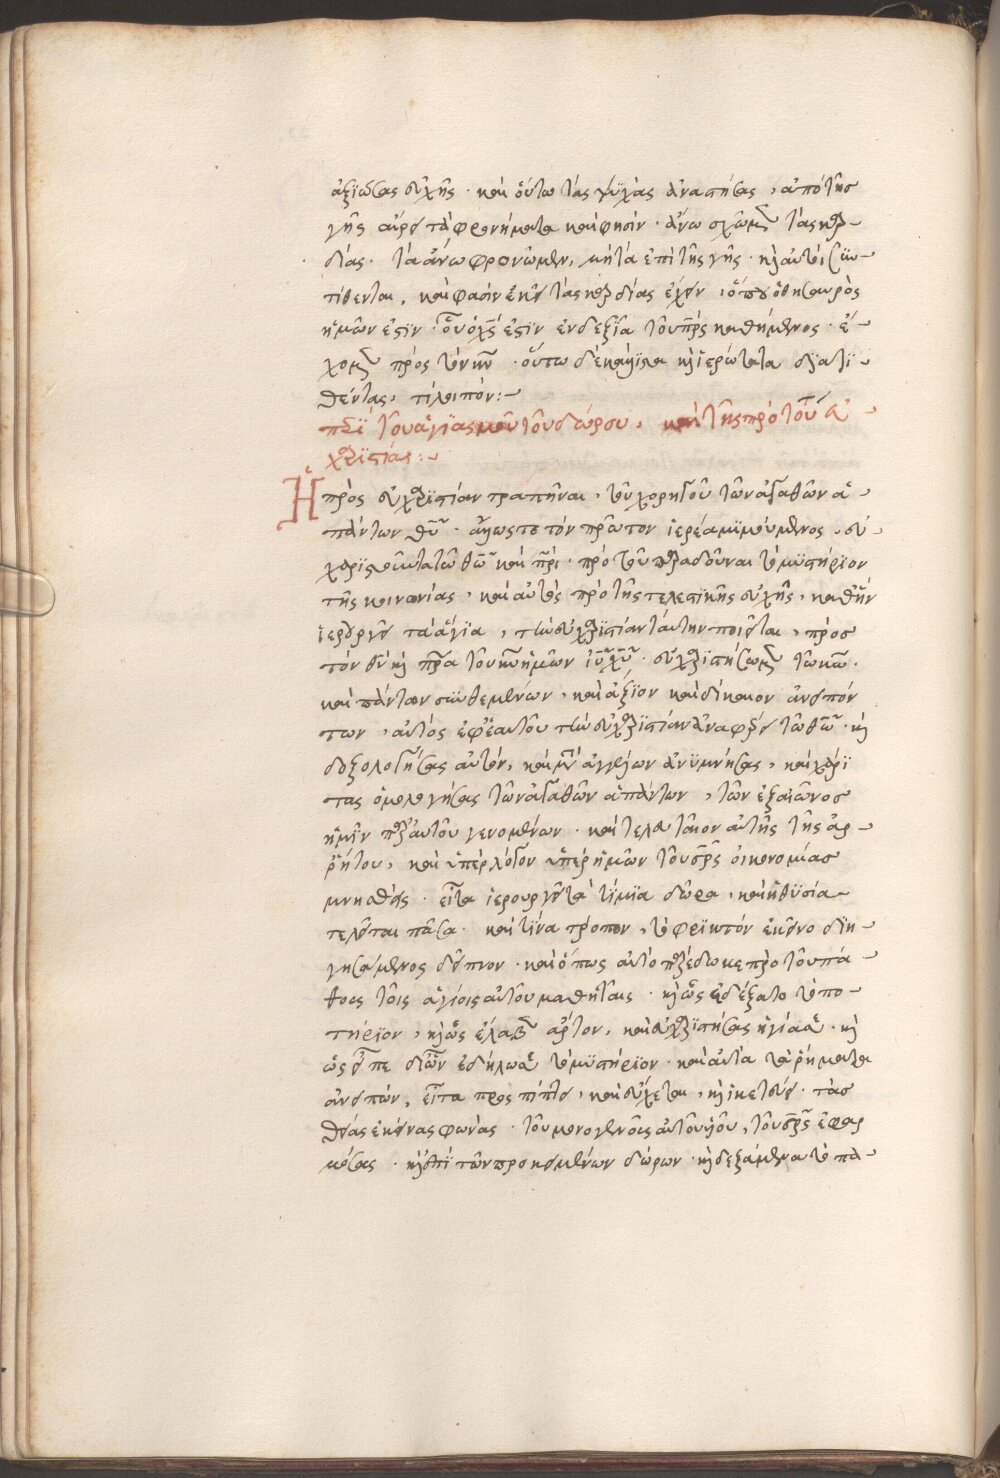 ἀξιώσας εὐχῆς · καὶ οὕτω τὰς ψυχὰς ἀναστήσας, ἀπὸ τῆς
γῆς αἴρει τὰ φρονήματα καὶ φησὶν · ἄνω σχῶμεν τὰς καρ-
δίας · τὰ ἄνω φρονῶμεν, μὴ τὰ ἐπὶ τῆς γῆς · κἀυτοὶ συν-
τίθενται, καὶ φασὶν ἐκεῖ τὰς καρδίας ἔχειν, ὅπου ὁ θησαυρὸς
ἡμῶν ἐστιν · οὗ ὁ χς ἐστιν ἐν δεξιᾷ τοῦ πρς καθήμενος · ἔ-
χομεν πρὸς τὸν κν · οὕτω δὲ καὶ ἱερώτατα διατι-
θέντας, τί λοιπόν :-
περὶ τοῦ ἁγιασμοῦ τοῦ δώρου, καὶ τῆς πρὸ τούτου εὐ-
χαριστίας :-
Ἢ πρὸς εὐχαριστίαν τραπῆναι, τοῦ χορηγοῦ τῶν ἀγαθῶν ἁ-
πάντων θυ · ἄλλως τε τὸν πρῶτον ἱερέα μιμούμενος, εὐ-
χαριστοῦντα τῷ θω καὶ πρι · πρὸ τοῦ παραδοῦναι τὸ μυστήριον
τῆς κοινωνίας, καὶ αὐτὸς πρὸ τῆς τελεστικῆς εὐχῆς, καθ' ἣν
ἱερουργεῖ τὰ ἅγια, τὴν εὐχαριστίαν ταύτην ποιεῖται, πρὸς
τὸν θν κ πρα τοῦ κυ ἡμῶν ιυ χυ · εὐχαριστήσωμεν τῷ κω ·
καὶ πάντων συνθεμένων, καὶ ἄξιον καὶ δίκαιον ἀνειπόν-
των, αὐτὸς ἐφ' ἑαυτοῦ τὴν εὐχαριστίαν ἀναφέρει τῷ θω · κ
δοξολογήσας αὐτὸν, καὶ μετ' ἀγγέλων ἀνυμνήσας, καὶ χάρι-
τας ὁμολογήσας τῶν ἀγαθῶν ἁπάντων, τῶν ἐξ αἰῶνος
ἡμῖν παρ' αὐτοῦ γενομένων · καὶ τελευταῖον αὐτῆς τῆς ἀρ-
ρήτου, καὶ ὑπὲρ λόγον ὑπὲρ ἡμῶν τοῦ σρς οἰκονομίας
μνησθεὶς · εἶτα ἱερουργεῖ τὰ τίμια δῶρα, καὶ ἡ θυσία
τελεῖται πᾶσα · καὶ τίνα τρόπον, τὸ φρικτὸν ἐκεῖνο διη-
γησάμενος δεῖπνον · καὶ ὅπως αὐτὸ παρέδωκε πρὸ τοῦ πά-
θους τοῖς ἁγίοις αὐτοῦ μαθηταῖς · κ ὡς ἐδέξατο τὸ πο-
τήριον, κ ὡς ἔλαβεν ἄρτον, καὶ εὐχαριστήσας ἡγίασε · κ
ὡς εἶπε δι' ὧν ἐδήλωσε τὸ μυστήριον · καὶ αὐτὰ τὰ ῥήματα
ἀνειπὼν, εἶτα προσπίπτει, καὶ εὔχεται, κ ἱκετεύει · τὰς
θείας ἐκείνας φωνὰς · τοῦ μονογενοῦς αὐτοῦ υἱοῦ, τοῦ σρς ἐφαρ-
μόσας · κ ἐπὶ τῶν προκειμένων δώρων · κ δεξάμενα τὸ πα-